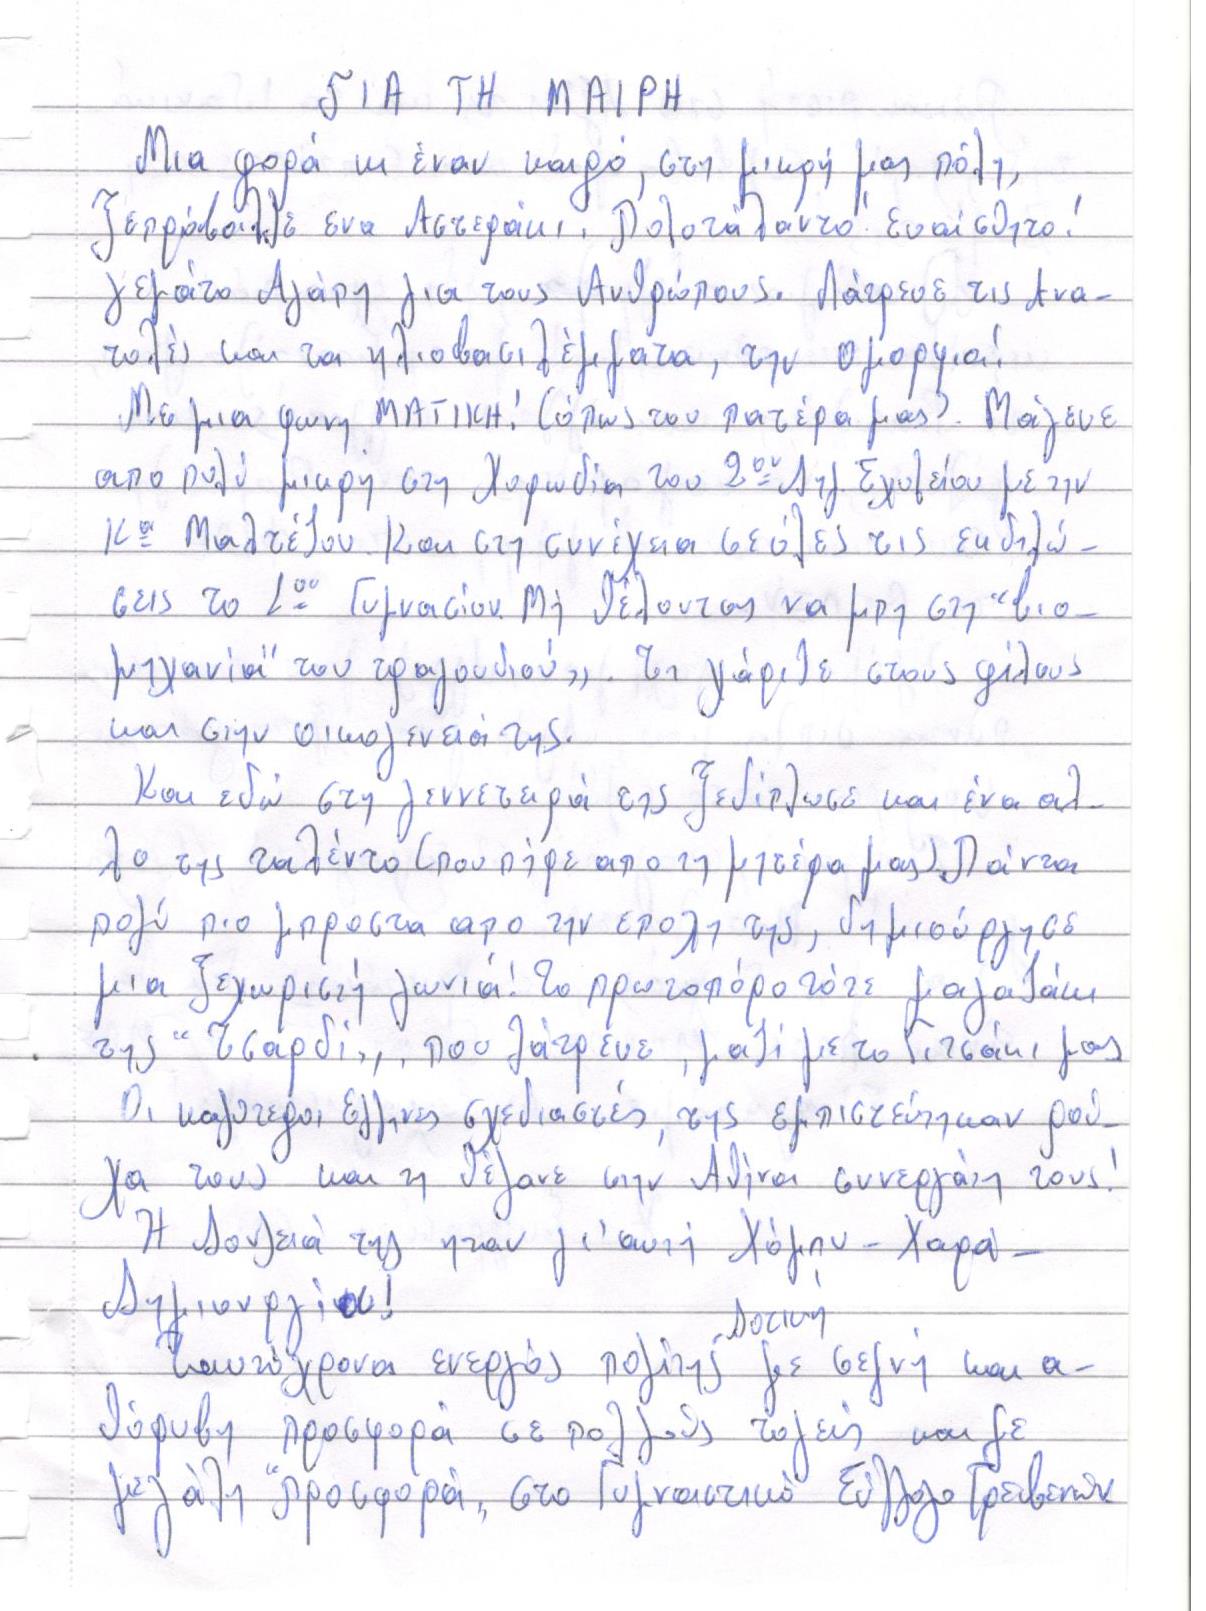 ΓΙΑ ΤΗ ΜΑΙΡΗ
Μια φορά κι έναν καιρό, στη μικρή μας πόλη,
ξεπρόβαλλε ενα Αστεράκι. Πολυτάλαντο! Ευαίσθητο!
γεμάτο Αγάπη για τους Ανθρώπους. Λάτρευε τις Ανα-
τολές και τα ηλιοβασιλέμματα, την ομορφια!
Με μια φωνη ΜΑΓΙΚΗ! (όπως του πατέρα μας). Μάγευε
απο πολύ μικρή στη Χορωδία του 2ου Δημ. Σχολείου με την
Κα Μαλτέζου. Και στη συνέχεια σε όλες τις εκδηλώ-
σεις το 1ου Γυμνασίου. Μή θέλοντας να μπη στη "βιο-
μηχανία" του τραγουδιού,,. τη χάριζε στους φίλους
και στην οικογενειά της.
Και εδώ στη γεννετειρά της ξεδίπλωσε και ένα αλ-
λο της ταλέντο (που πήρε απο τη μητέρα μας). Πάντα
πολύ πιο μπροστα απο την εποχη της, δημιούργησε
μια ξεχωριστή γωνιά! το πρωτοπόρο τότε μαγαζάκι
της "Τσαρδί,,, που λάτρευε, μαζί με το Γιτσάκι μας
Οι καλύτεροι Ελληνες σχεδιαστές, της εμπιστεύτηκαν ρού-
χα τους και τη θέλανε στην Αθήνα συνεργάτη τους!
Η Δουλειά της ηταν γι' αυτή Χόμπυ - Χαρά -
Δημιουργία!
Δοτική
Ταυτόχρονα ενεργός πολίτης με σεμνή και α-
θόρυβη προσφορά σε πολλούς τομείς και με
μεγάλη "προσφορά,, στο Γυμναστικό Σύλλογο Γρεβενών